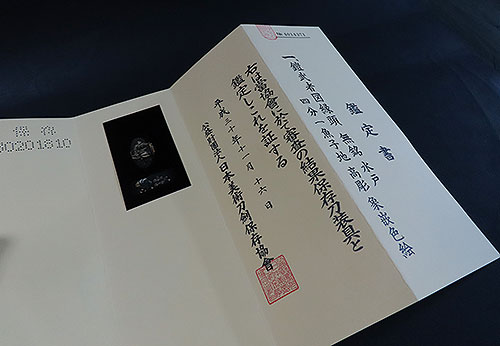 鑑定書
一、鎧武者図縁頭 無銘 水戸
四分一魚子地 高彫 象嵌色絵
右は當協會に於て審査の結果保存刀装具と
鑑定しこれを証する
平成三十年十一月十六日
公益財團法人日本美術刀劍保存協會
保存
00201810